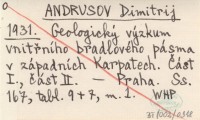 o
ANDRUSOV Dimitrij
1931. Geologický výzkum
vnitřního bradlového pásma
v západních Karpatech. Část
I., část II. — Praha. Ss.
167, tabl. 9+7, m. 1. WHP